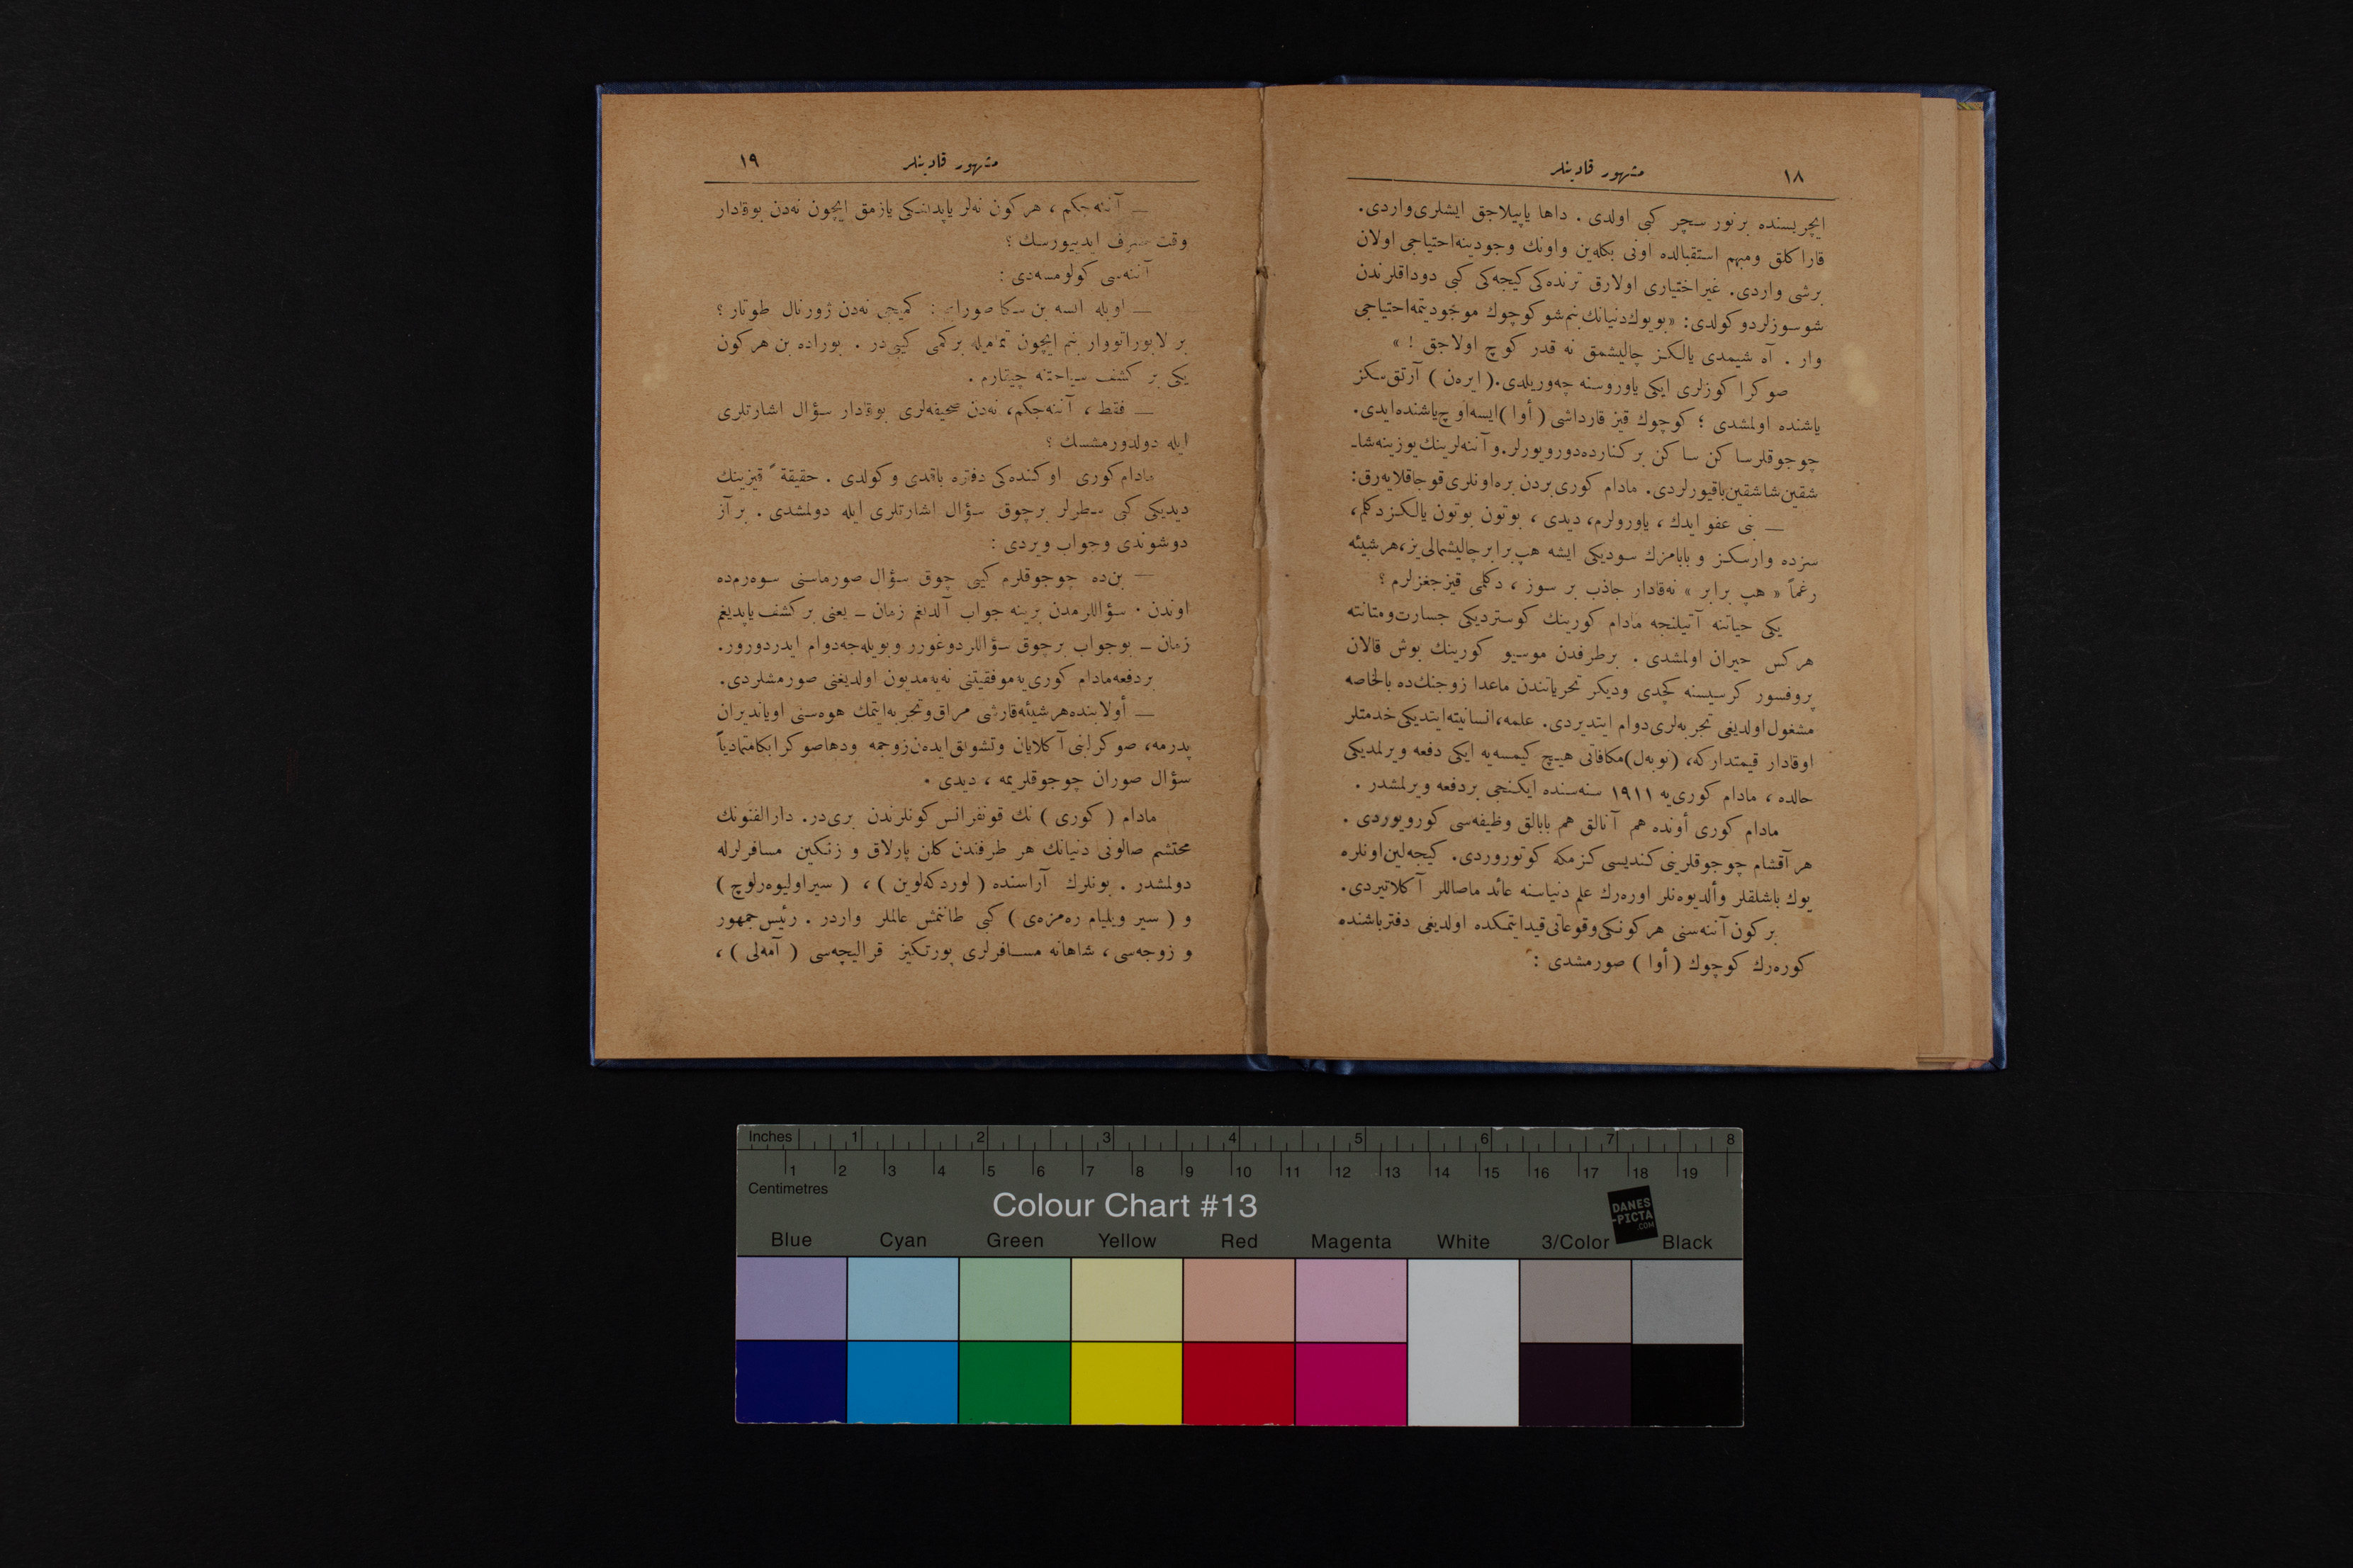 ١٨
مشهور قادینلر
ایچریسنده برنور سچر کبی اولدی . داها یاپیلاجق ایشلری‌واردی.
قاراکلق ومبهم استقبالده اونی بکله‌ین واونك وجودینه‌احتیاجی اولان
برشی واردی. غیراختیاری اولارق ترنده‌کی کیجه‌کی کبی دوداقلرندن
شوسوزلر دوکولدی: «بویوك‌دنیانك‌بنم‌شو کوچوك موجودیتمه‌احتیاجی
وار . آه شیمدی یالکز چالیشمق نه قدر کوچ اولاجق ! »
صوکرا کوزلری ایکی یاوروسنه چه‌وریلدی.( ایره‌ن ) آرتق‌سکز
یاشنده اولمشدی ؛ کوچوك قیز قارداشی ( أوا )ایسه‌اوچ‌یاشنده‌ایدی.
چوجوقلر ساکن ساکن بر کنارده‌دورویورلر.و آننه‌لرینك‌یوزینه‌شا-
شقین‌شاشقین‌باقیورلردی. مادام کوری‌بردن بره‌اونلری‌قوجاقلایه‌رق:
— بنی عفو ایدك ، یاورولرم، دیدی ، بوتون بوتون یالکز دکلم،
سزده وارسکز و بابامزك سودیکی ایشه هپ‌برابر چالیشمالی‌یز،هرشیئه
رغماً « هپ برابر » نه‌قادار جاذب بر سوز ، دکلمی قیزجغزلرم ؟
یکی حیاتنه آتیلنجه مادام کورینك کوستردیکی جسارت‌ومتانته
هرکس حیران اولمشدی . برطرفدن موسیو کورینك بوش قالان
پروفسور کرسیسنه کچدی ودیکر تحریاتندن ماعدا زوجنك‌ده بالخاصه
مشغول‌اولدیغی تجربه‌لری‌دوام ایتدیردی. علمه،انسانیته‌ایتدیکی‌خدمتلر
اوقادار قیمتدارکه، (نوبه‌ل)مکافاتی هیچ کیمسه‌یه ایکی دفعه ویرلمدیکی
حالده ، مادام کوری‌یه ١٩١١ سنه‌سنده ایکنجی بردفعه ویرلمشدر .
مادام کوری أونده هم آنالق هم بابالق وظیفه‌سی کورویوردی .
هرآقشام چوجوقلرینی کندیسی کزمکه کوتوروردی. کیجه‌لین‌اونلره
یوك باشلقلر وألدیوه‌نلر اوره‌رك علم دنیاسنه عائد ماصاللر آکلاتیردی.
برکون آننه‌سنی هرکونکی‌وقوعاتی‌قیدایتمکده اولدیغی دفترباشنده
کوره‌رك کوچوك ( أوا ) صورمشدی :
١٩
مشهور قادینلر
— آننه‌جکم ، هرکون نه‌لر یاپدیغکی یازمق ایچون نه‌دن بوقادار
وقت صرف ایدییورسك ؟
آننه‌سی کولومسه‌دی :
— اویله ایسه بن سکا صورایم : کمیجی نه‌دن ژورنال طوتار ؟
بر لابوراتووار بنم ایچون تمامیله برکمی کیبی‌در . بوراده بن هرکون
یکی بر کشف سیاحتنه چیقارم .
— فقط ، آننه‌جکم، نه‌دن صحیفه‌لری بوقادار سؤال اشارتلری
ایله دولدورمشسك ؟
مادام کوری اوکنده‌کی دفتره باقدی وکولدی . حقیقةً قیزینك
دیدیکی کبی سطرلر برچوق سؤال اشارتلری ایله دولمشدی . برآز
دوشوندی وجواب ویردی :
— بن‌ده چوجوقلرم کیبی چوق سؤال صورماسنی سوه‌رم‌ده
اوندن . سؤاللرمدن برینه جواب آلدیغم زمان – یعنی برکشف یاپدیغم
زمان – بوجواب برچوق سؤاللر دوغورر وبویله‌جه‌دوام ایدر‌دورور.
بردفعه‌مادام کوری‌یه‌موفقیتنی نه‌یه‌مدیون اولدیغنی صورمشلردی.
— أولا بنده‌هرشیئه‌قارشی مراق‌وتجربه‌ایتمك هوه‌سنی اویاندیران
پدرمه، صوکرا بنی آکلایان وتشویق‌ایده‌ن‌زوجمه ودهاصوکرا بکامتمادیاً
سؤال صوران چوجوقلریمه ، دیدی .
مادام ( کوری ) نك قونفرانس کونلرندن بری‌در. دارالفنونك
محتشم صالونی دنیانك هر طرفندن کلن پارلاق و زنکین مسافرلرله
دولمشدر . بونلرك آراسنده ( لورد که‌لوین ) ، ( سیر اولیوه‌ر لوچ )
و ( سیر ویلیام ره‌مزه‌ی ) کبی طانتمش عالملر واردر . رئیس جمهور
و زوجه‌سی ، شاهانه مسافرلری پورتکیز قرالیچه‌سی ( آمه‌لی ) ،
Inches 1 2 3 4 5 6 7 8
1 2 3 4 5 6 7 8 9 10 11 12 13 14 15 16 17 18 19
Centimetres
Colour Chart #13
DANES-PICTA.COM
Blue Cyan Green Yellow Red Magenta White 3/Color Black